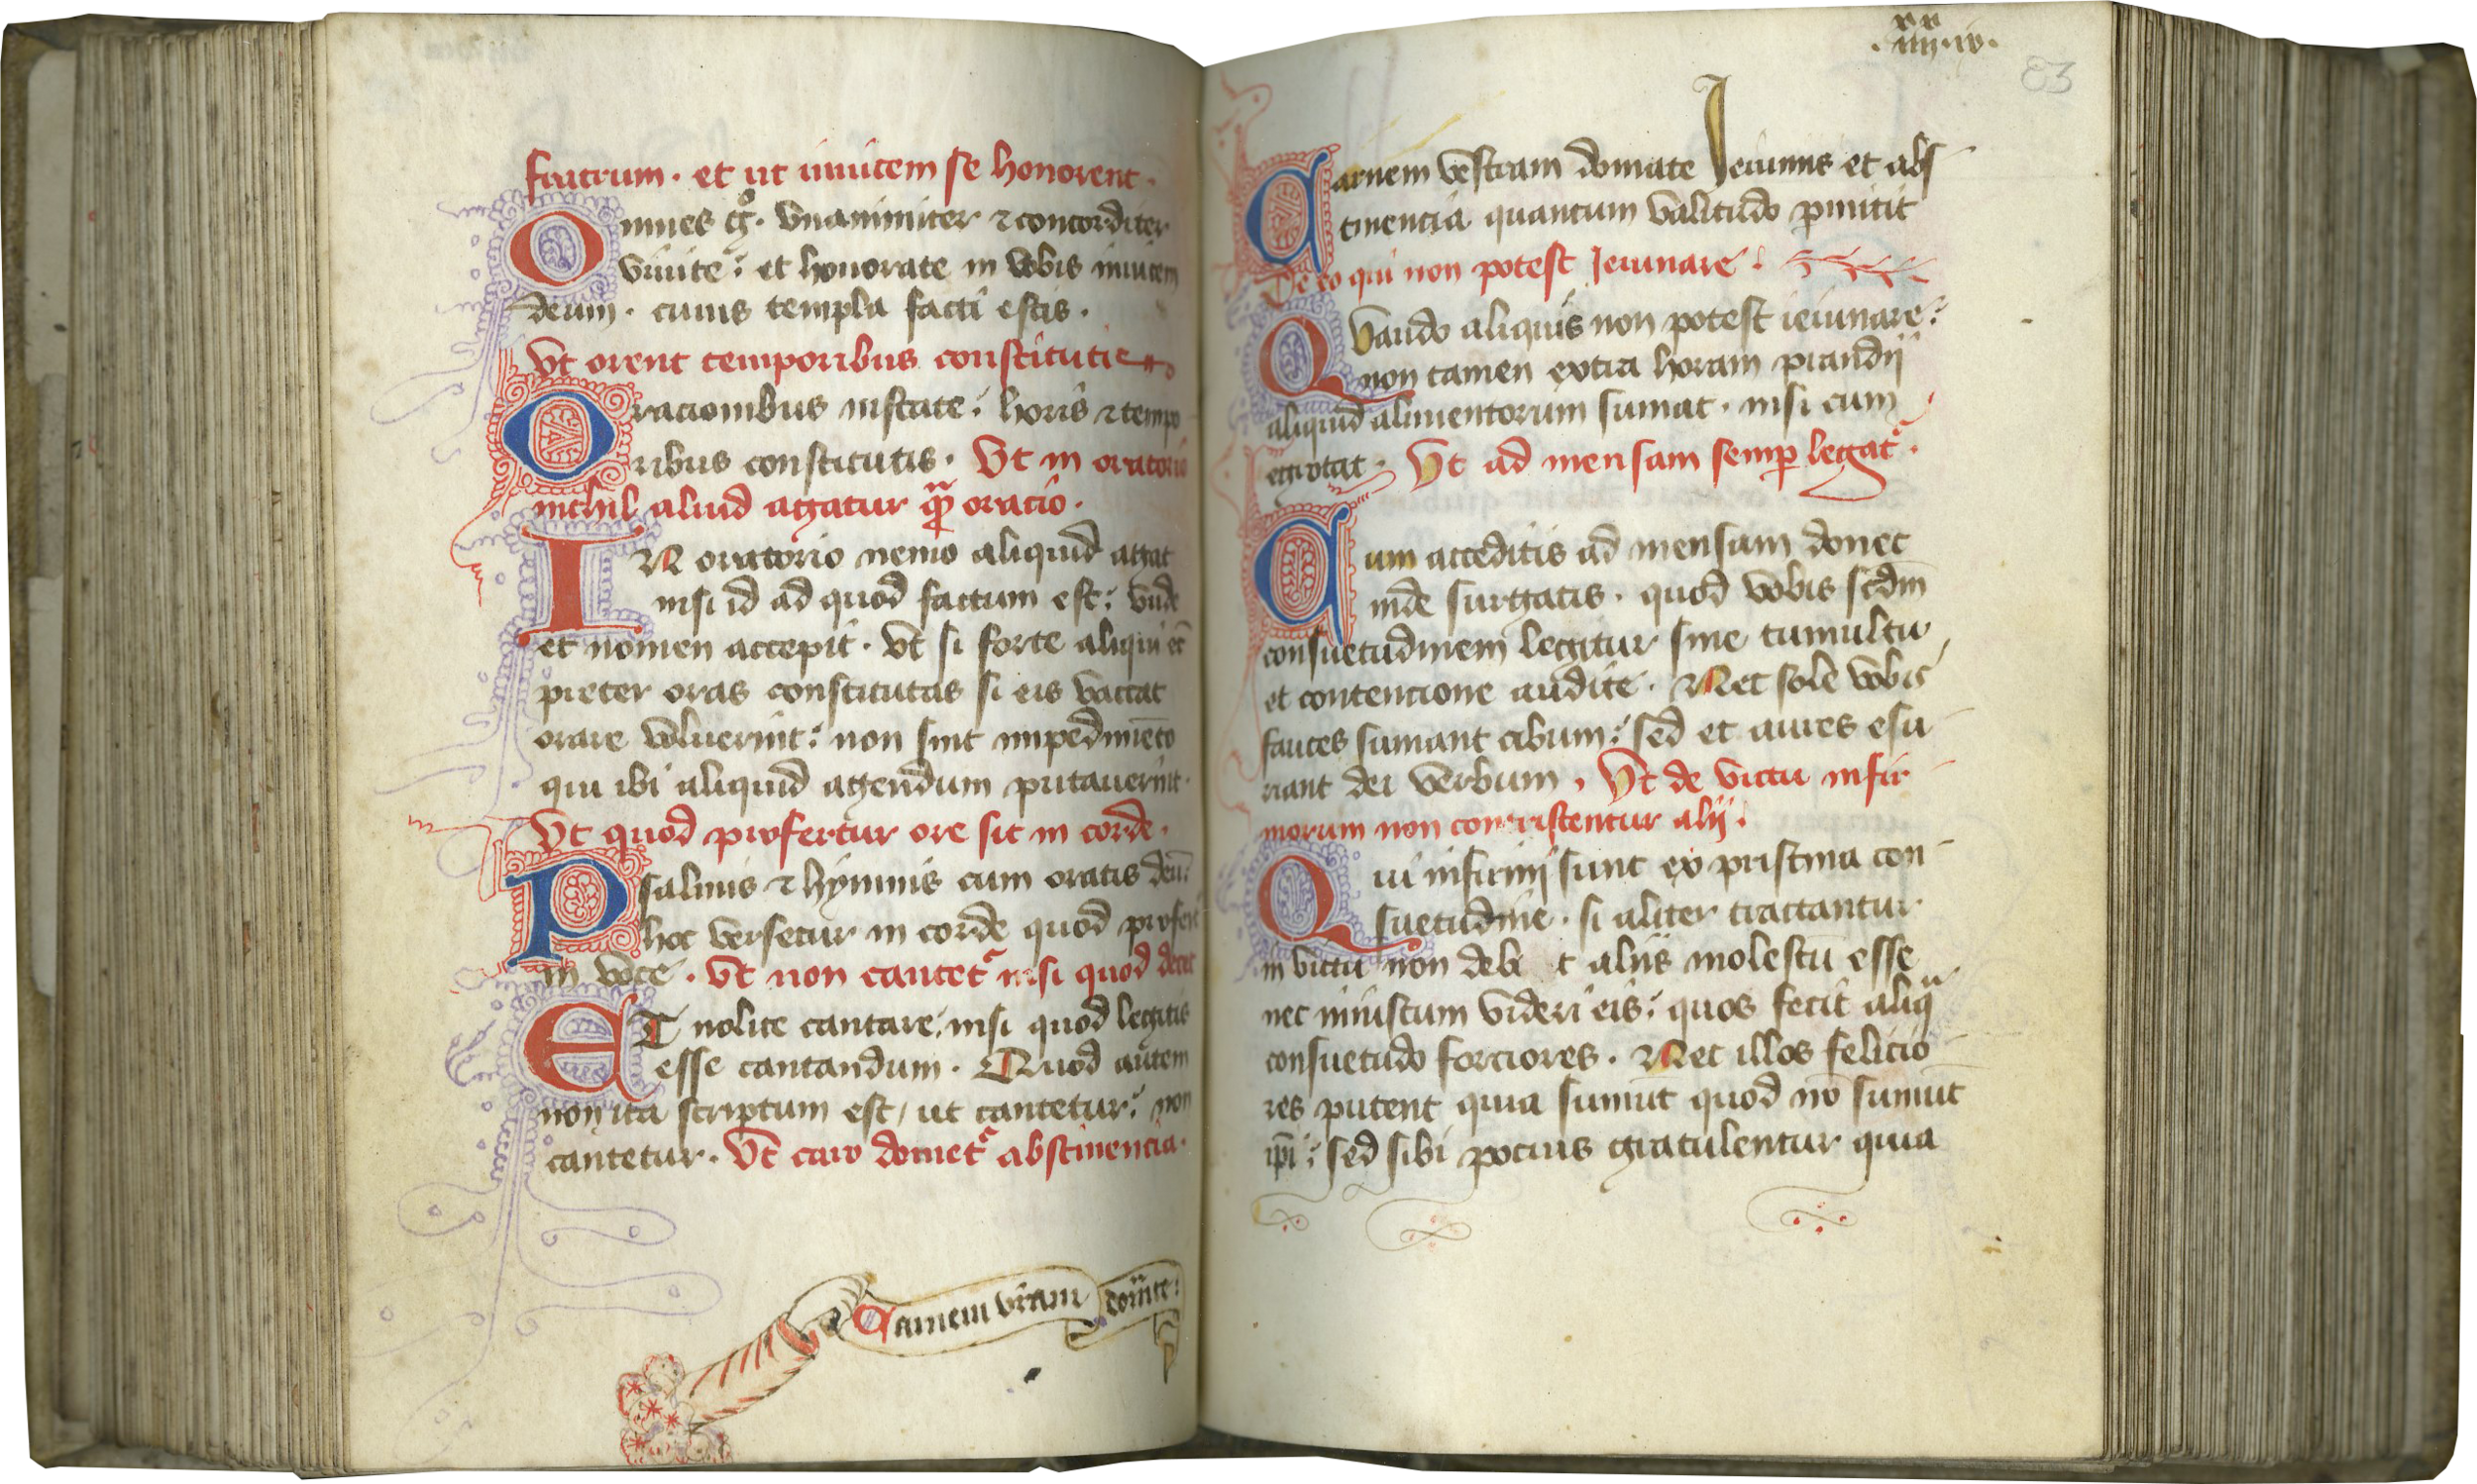 fratrum · et ut inuicem se honorent ·
Omnes g̊ · vnanimiter ⁊ concorditer
viuite : et honorate in vobis inuicem
deum · cuius templa facti estis ·
Vt orent temporibus constitutis
Oracionibus instate : horis ⁊ tempo
ribus constitutis · Vt in oratorio
nichil aliud agatur qᷓm oracio ·
IN oratorio nemo aliquid agat
nisi id ad quod factum est : vnde
et nomen accepit · Vt si forte aliqui ec̄
preter oras constitutas si eis vaccat
orare voluerint : non sint impedimēto
qui ibi aliquid agendum putauerint ·
Vt quod profertur ore sit in corde ·
Psalmis ⁊ hymnis cum oratis deū :
hoc versetur in corde quod profert
in voce · Vt non cantet᷑ nisi quod decet
ET nolite cantare : nisi quod legitis
esse cantandum · Quod autem
non ita scriptum est / ut cantetur : non
cantetur · Vt caro domet᷑ abstinencia ·
Carnem vr̄am domite :
xx xx
· iiij · iv ·
83
Carnem vestram domate Ieiuniis et abs
tinencia quantum valitudo ꝑmitit
De eo qui non potest Ieiunare :
Quando aliquis non potest ieiunare :
non tamen extra horam prandij
aliquid alimentorum sumat · nisi cum
egrotat · Vt ad mensam semꝑ legat᷑ ·
Cum acceditis ad mensam donec
inde surgatis · quod vobis scdm̄
consuetudinem legitur sine tumultu
et contencione audite · Nec sole vobis
fauces sumant cibum : sed et aures esu
riant dei verbum · Vt de victu infir
morum non contristentur alij :
Qui infirmi sunt ex pristina con
suetudine · si aliter tractantur
in victu non debet aliis molestū esse
nec iniustum videri eis : quos fecit aliqᷓ
consuetudo forciores · Nec illos felicio
res putent quia sumūt quod nō sumūt
ip̄i : sed sibi pocius gratulentur quia